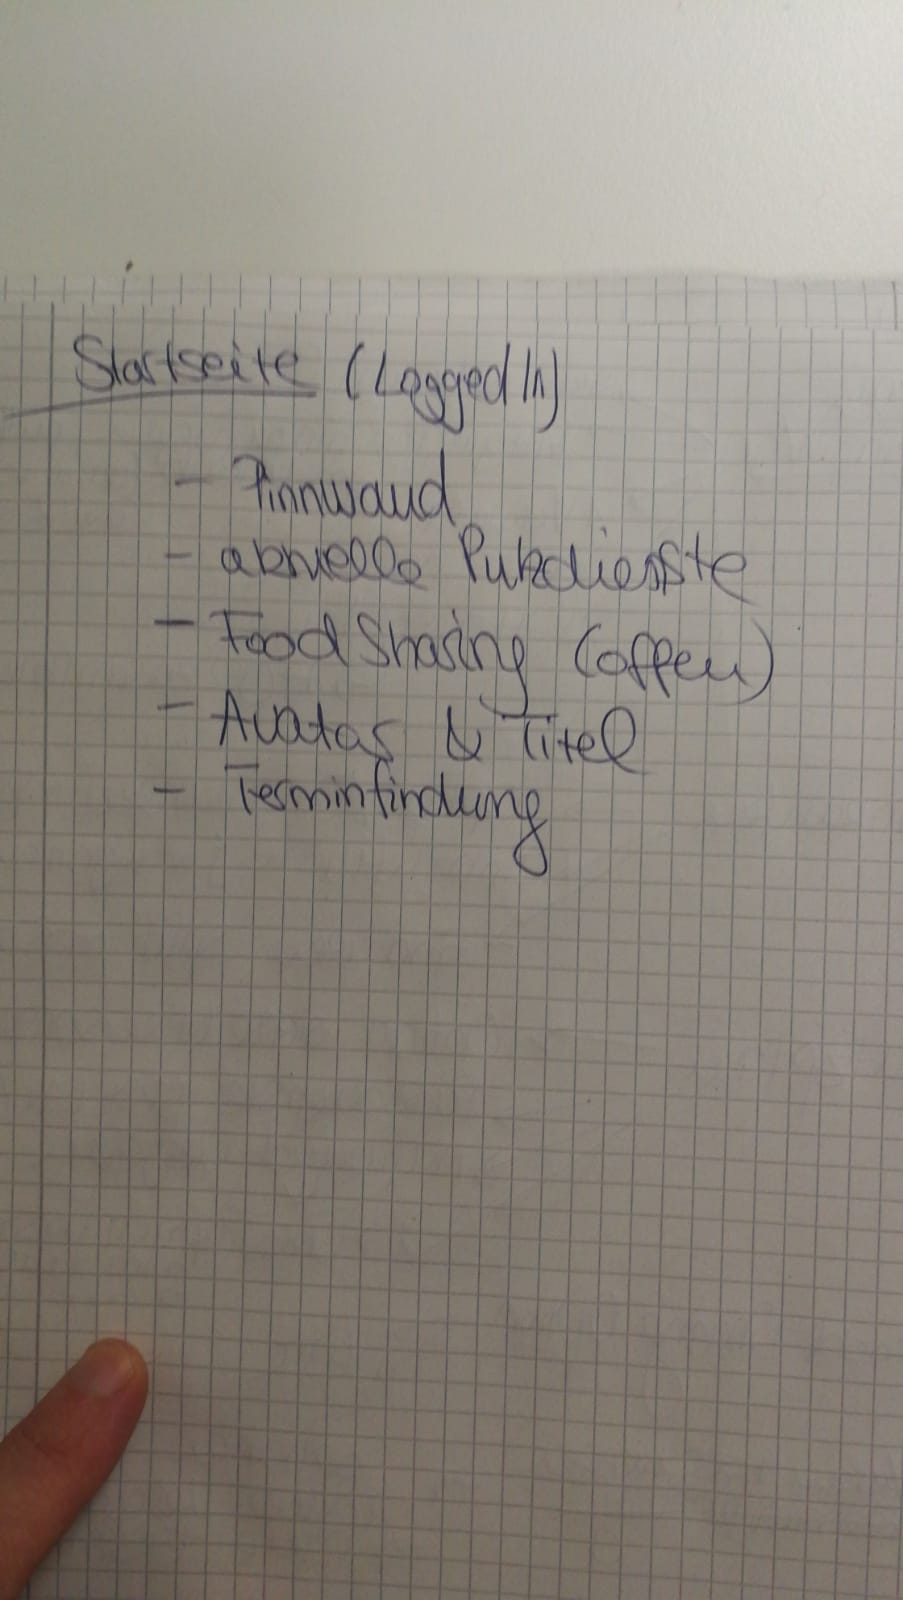 Startseite (Logged In)
- Pinnwand
- aktuelle Putzdienste
- Food Sharing (offen)
- Avatar & Titel
- Terminfindung